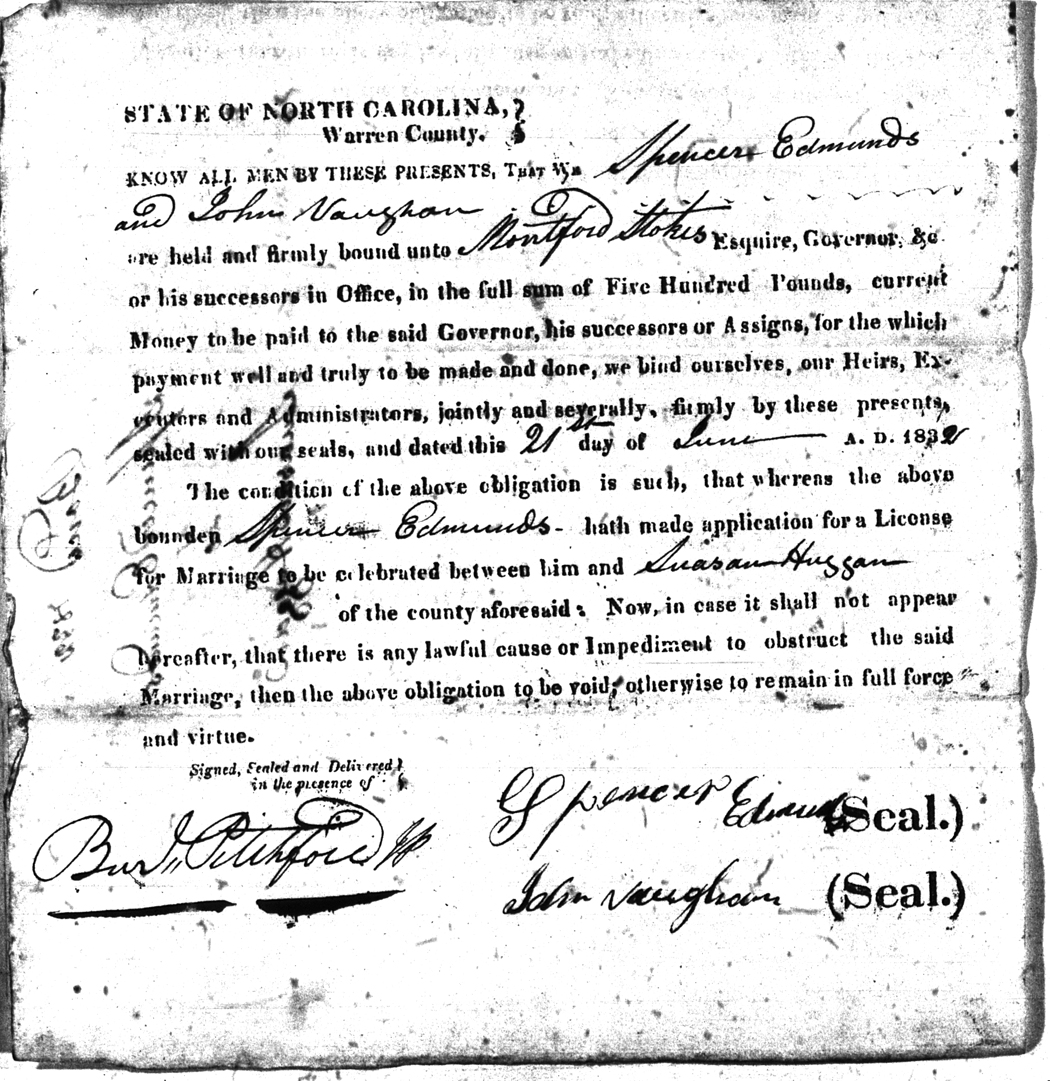 STATE OF NORTH CAROLINA,
Warren County.
KNOW ALL MEN BY THESE PRESENTS, THAT WE Spencer Edmunds
and John Vaughan
are held and firmly bound unto Montford Stokes Esquire, Governor, &c
or his successors in Office, in the full sum of Five Hundred Pounds, current
Money to be paid to the said Governor, his successors or Assigns, for the which
payment well and truly to be made and done, we bind ourselves, our Heirs, Ex-
ecutors and Administrators, jointly and severally, firmly by these presents,
sealed with our seals, and dated this 21st day of June A. D. 1832
The condition of the above obligation is such, that whereas the above
bounden Spencer Edmunds - hath made application for a License
for Marriage to be celebrated between him and Suasan Huggan
of the county aforesaid: Now, in case it shall not appear
hereafter, that there is any lawful cause or Impediment to obstruct the said
Marriage, then the above obligation to be void, otherwise to remain in full force
and virtue.
Signed, Sealed and Delivered
in the presence of
Spencer Edmunds (Seal.)
Pitchford
John Vaughan (Seal.)